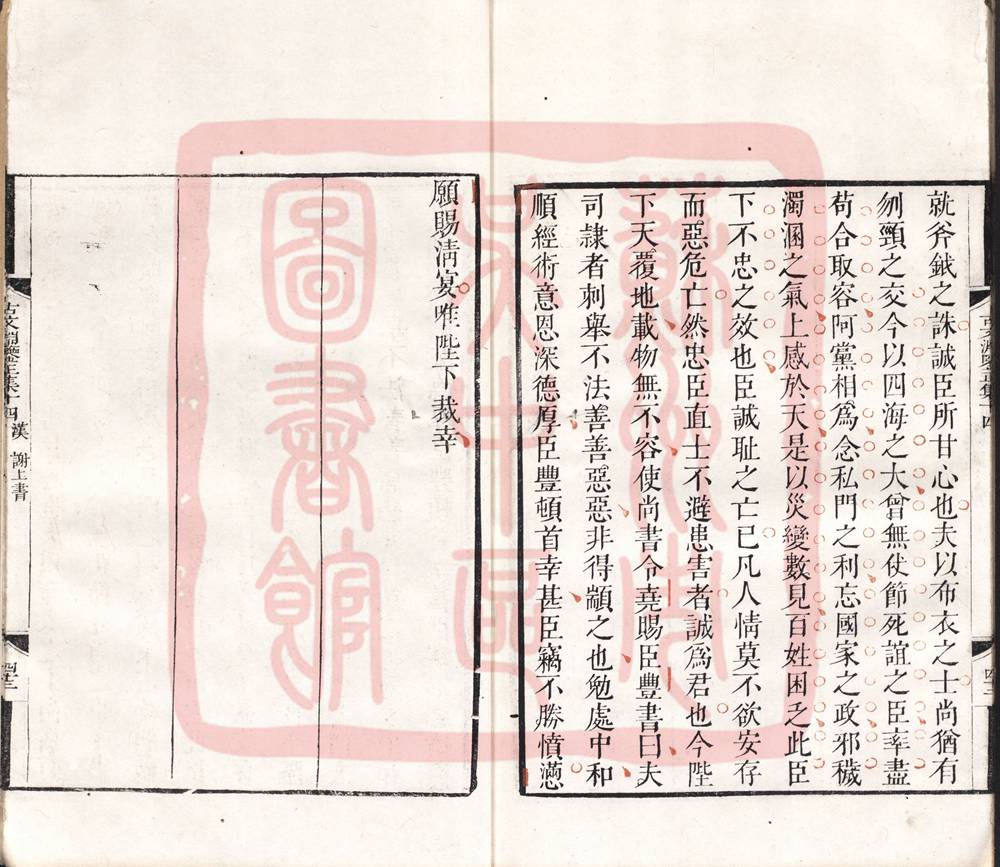 就斧鉞之誅誠臣所甘心也夫以布衣之士尚猶有
刎頸之交今以四海之大曾無伏節死誼之臣率盡
苟合取容阿黨相爲念私門之利忘國家之政邪穢
濁溷之氣上感於天是以災變數見百姓困乏此臣
下不忠之效也臣誠耻之亡已凡人情莫不欲安存
而惡危亡然忠臣直士不避患害者誠爲君也今陛
下天覆地載物無不容使尚書令堯賜臣豐書曰夫
司隷者刺舉不法善善惡惡非得顓之也勉處中和
順經術意恩深德厚臣豐頓首幸甚臣竊不勝憤懣
願賜淸宴唯陛下裁幸
古文淵鑒正集十四 漢 謝上書
圖書館